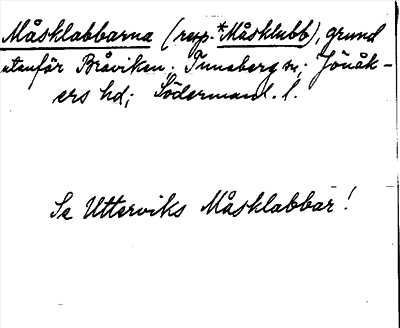 Måsklabbarna (resp. *Måsklubb), grund
utanför Bråviken. Tunaberg sn; Jönåk-
ers hd; Södermanl. l.
Se Utterviks Måsklabbar!